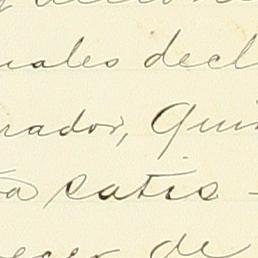 uales decl
rador, Qui
ta satis -
ecer de